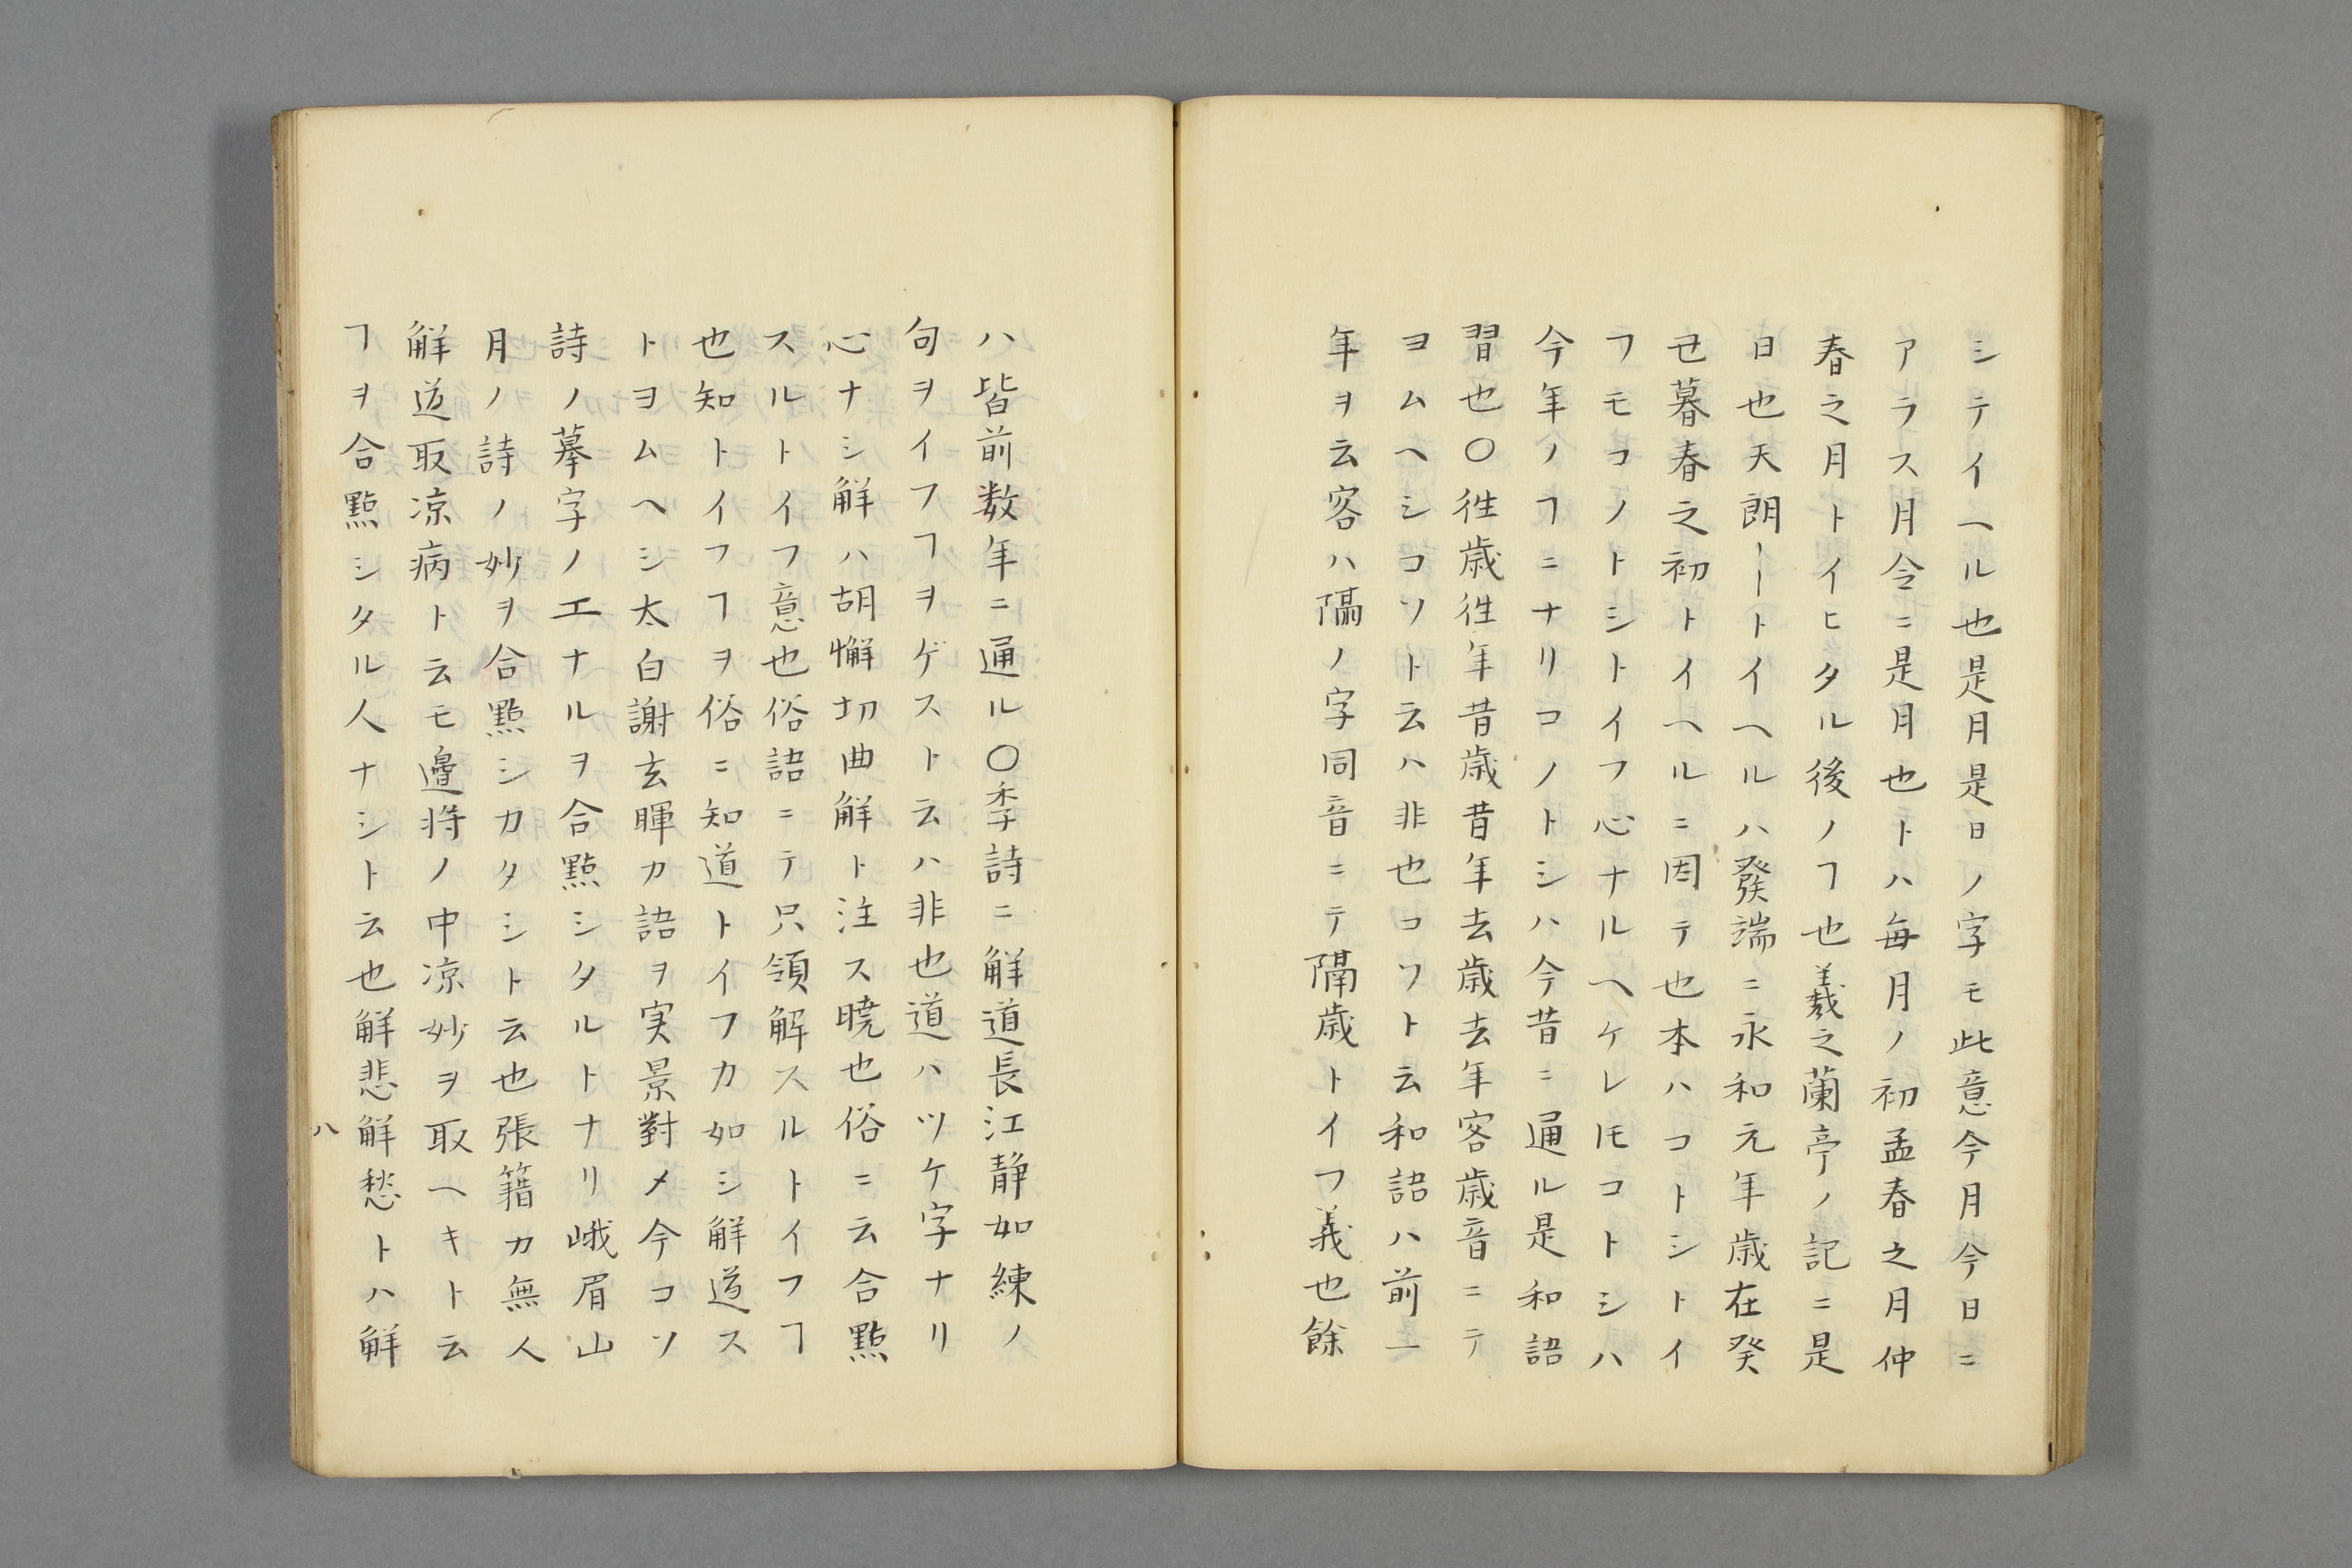 シテイヘル也是月是日ノ字モ此意今月今日ニ
アラス月令ニ是月也トハ毎月ノ初孟春之月仲
春之月トイヒタル後ノヿ也羲之蘭亭ノ記ニ是
日也天朗ーートイヘルハ發端ニ永和元年歳在癸
丑暮春之初トイヘルニ因テ也本ハコトシトイ
フモコノトシトイフ心ナルヘケレ𪜈コトシハ
今年ノヿニナリコノトシハ今昔ニ通ル是和語
習也〇徃歳徃年昔歳昔年去歳去年客歳音ニテ
ヨムヘシコソト云ハ非也コソト云和語ハ前一
年ヲ云客ハ隔ノ字同音ニテ隔歳トイフ義也餘
ハ皆前数年ニ通ル〇李詩ニ解道長江静如練ノ
句ヲイフヿヲゲスト云ハ非也道ハツケ字ナリ
心ナシ解ハ胡懈切曲解ト注ス曉也俗ニ云合點
スルトイフ意也俗語ニテ只領解スルトイフヿ
也知トイフヿヲ俗ニ知道トイフカ如シ解道ス
トヨムヘシ太白謝玄暉カ語ヲ実景對メ今コソ
詩ノ摹字ノ工ナルヲ合點シタルトナリ峨眉山
月ノ詩ノ妙ヲ合點シカタシト云也張籍カ無人
解道取凉病ト云モ邊将ノ中凉妙ヲ取ヘキト云
ヿヲ合點シタル人ナシト云也解悲解愁トハ解
八